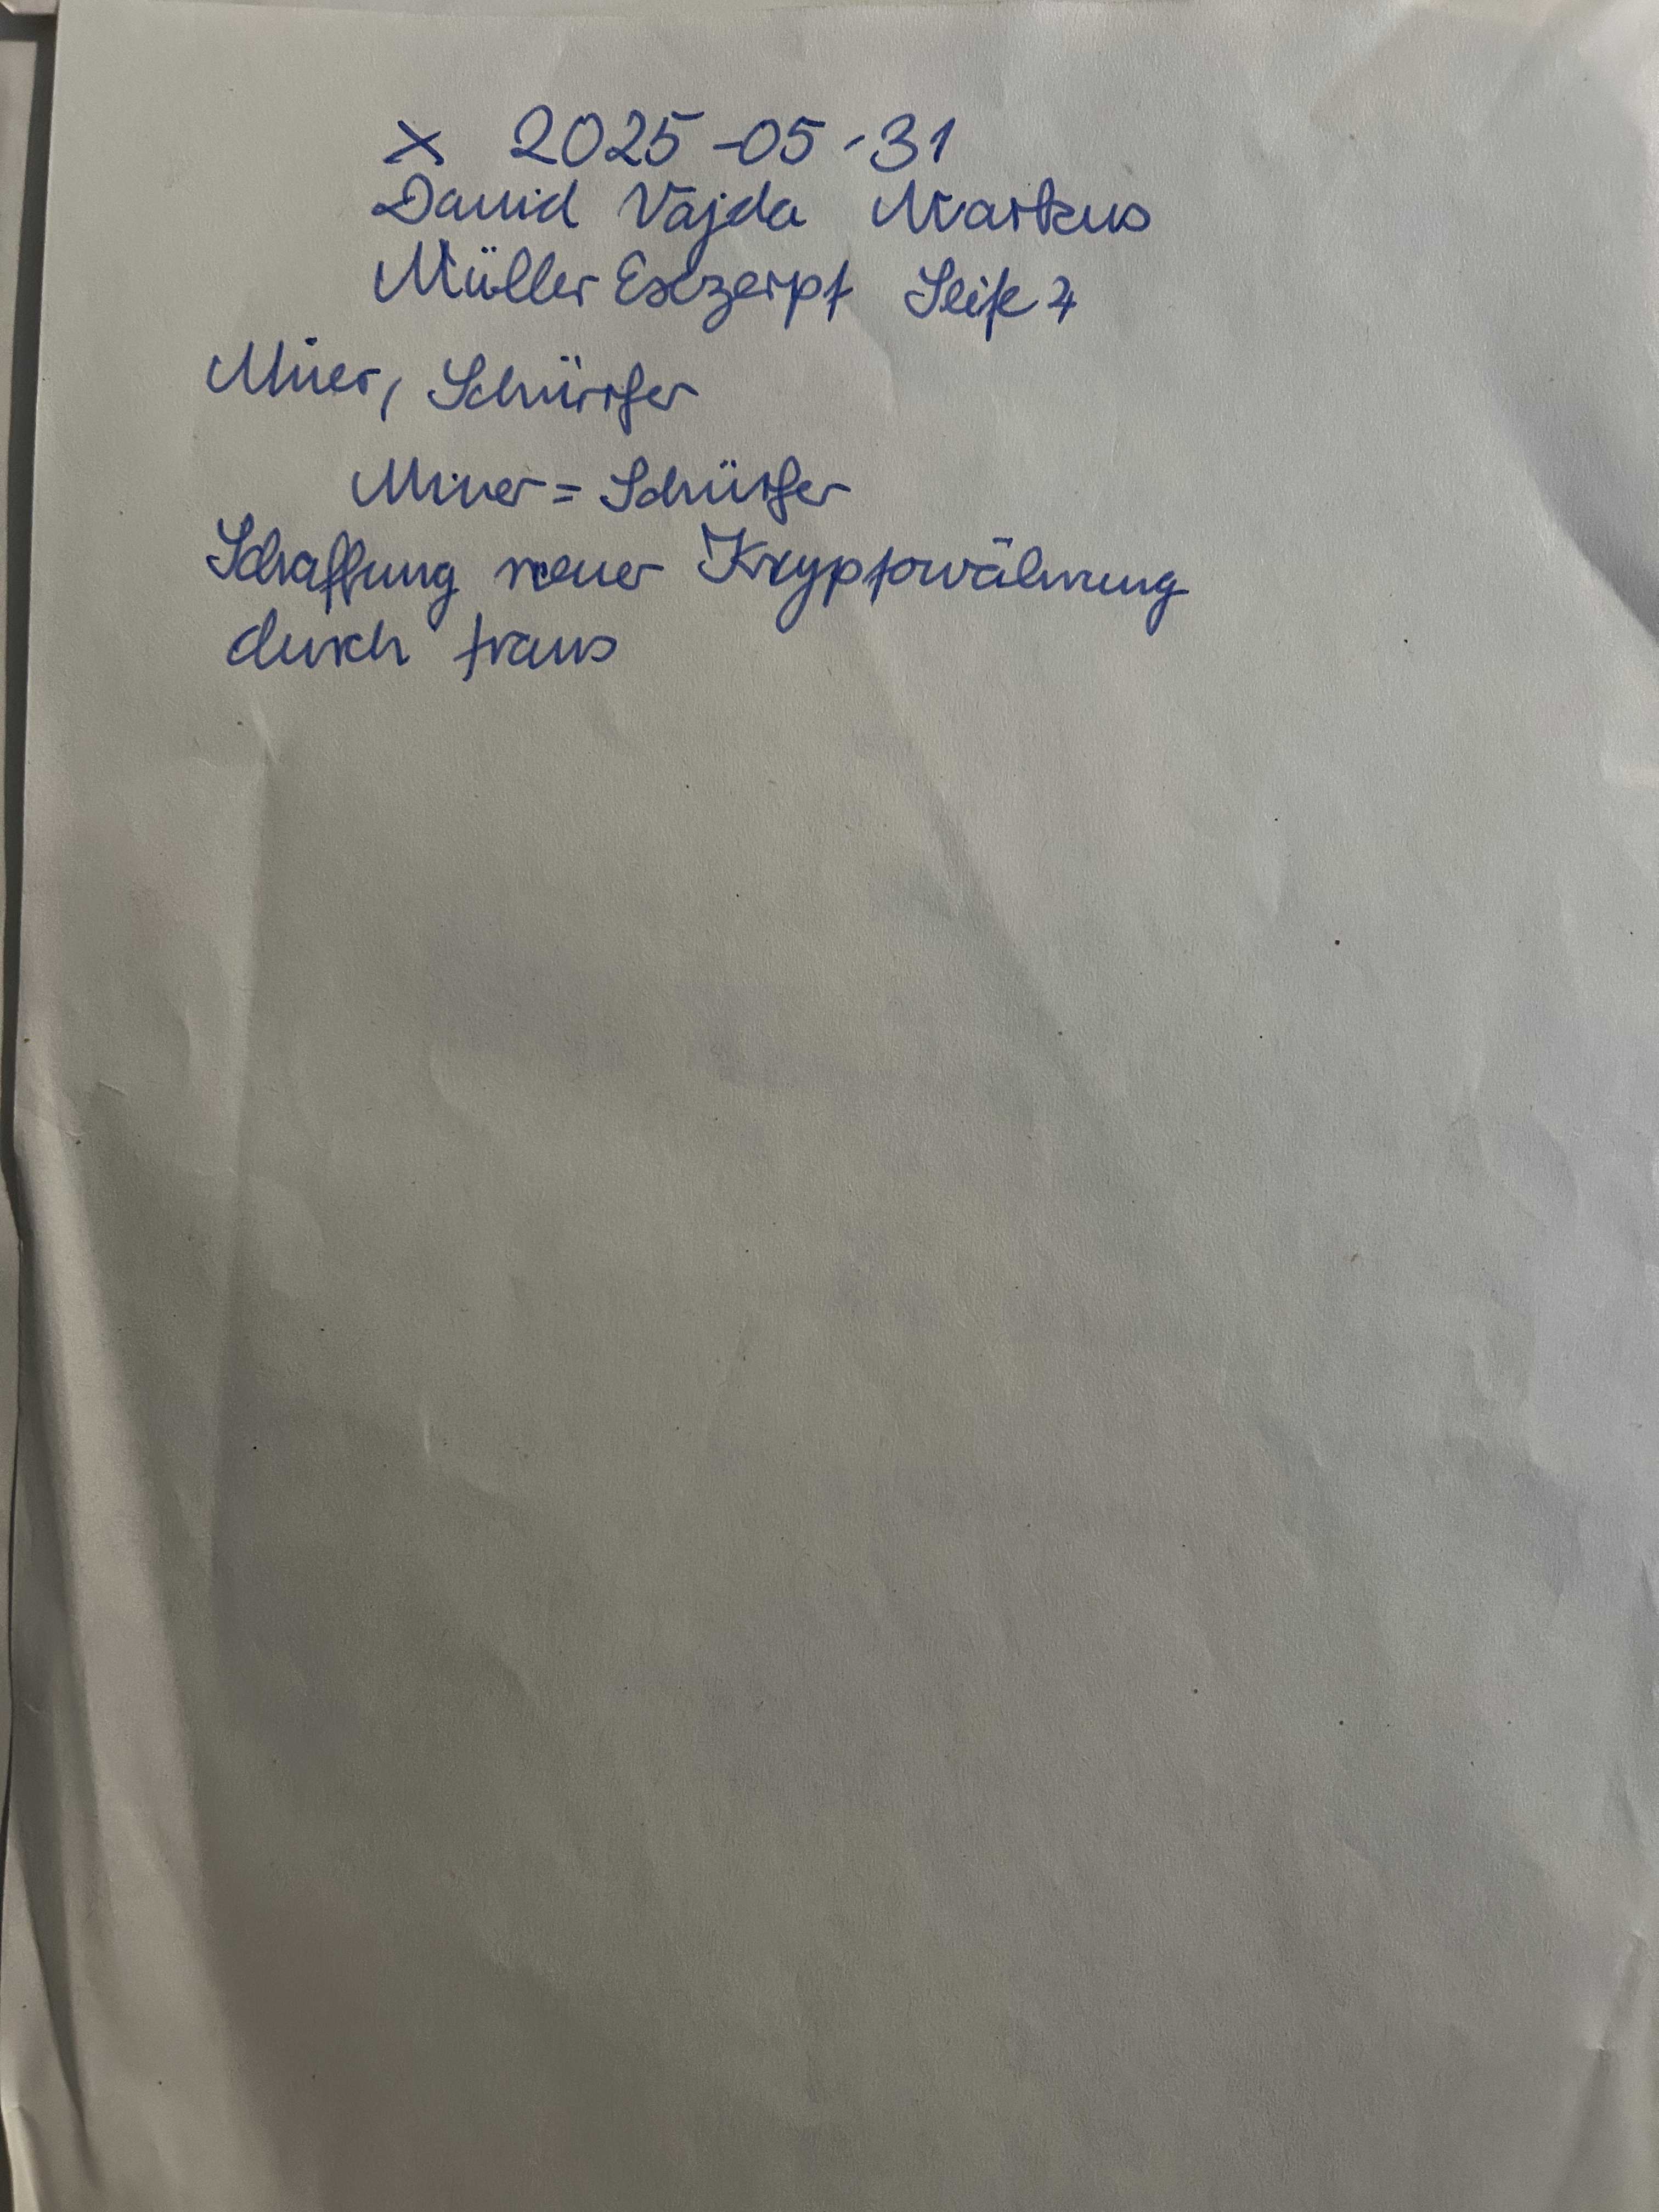 x 2025-05-31
David Vajda Markus
Müller Exzerpt Seite 7
Miner, Schürfer
Miner = Schürfer
Schaffung neuer Kryptowährung
durch trans